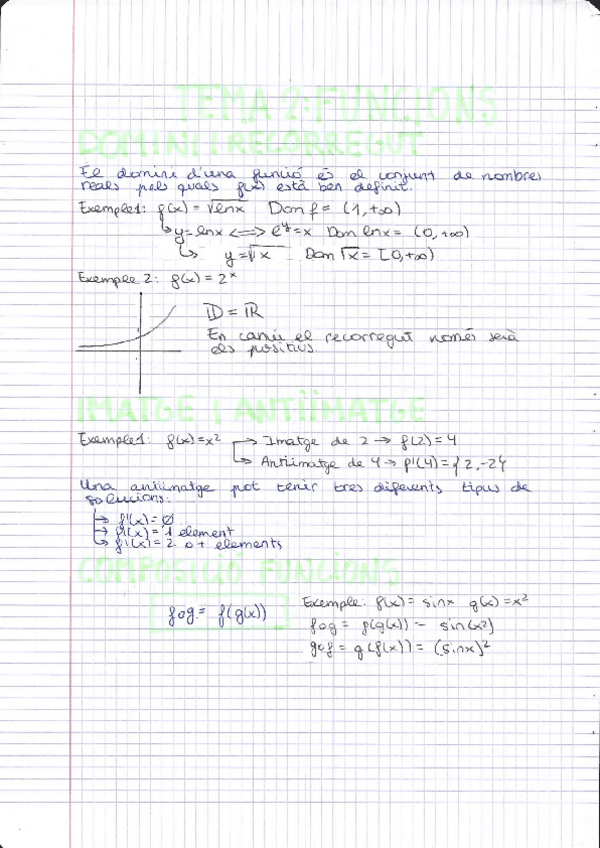 TEMA 2: FUNCIONS
DOMINI I RECORREGUT
El domini d'una funció és el conjunt de nombres
reals pels quals f(x) està ben definit.
Exemple 1: f(x) = √lnx Dom f = (1, +∞)
↳ y = lnx <=> e^y = x Dom lnx = (0, +∞)
↳ y = √x Dom √x = [0, +∞)
Exemple 2: f(x) = 2^x
D = R
En canvi el recorregut només serà
els positius.
IMATGE I ANTIIMATGE
Exemple 1: f(x) = x² → Imatge de 2 → f(2) = 4
↳ Antiimatge de 4 → f'(4) = {2, -2}
Una antiimatge pot tenir tres diferents tipus de
solucions:
→ f'(x) = Ø
→ f'(x) = 1 element
↳ f'(x) = 2 o + elements
COMPOSICIÓ FUNCIONS
fog = f(g(x)) Exemple: f(x) = sinx g(x) = x²
fog = f(g(x)) = sin(x²)
gof = g(f(x)) = (sinx)²